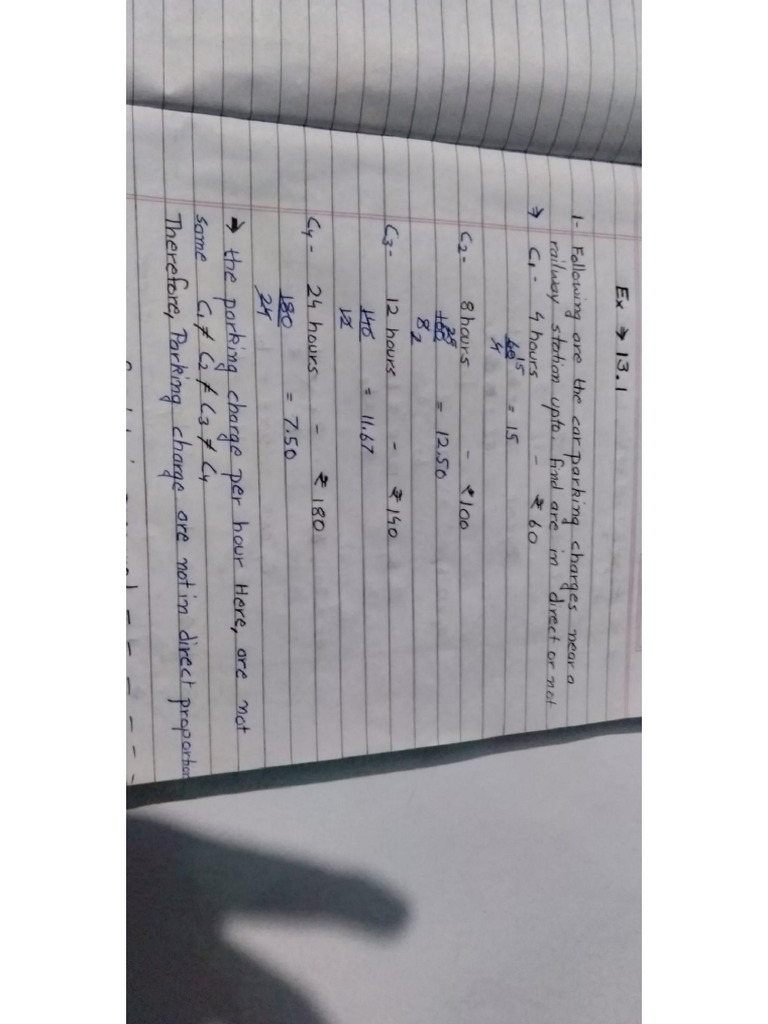 Ex → 13.1
1- Following are the car parking charges near a
railway station upto. find are in direct or not
→ C₁ - 4 hours - ₹ 60
60 15 / 4 = 15
C₂ - 8 hours - ₹ 100
100 25 / 8 2 = 12.50
C₃ - 12 hours - ₹ 140
140 / 12 = 11.67
C₄ - 24 hours - ₹ 180
180 / 24 = 7.50
→ the parking charge per hour Here, are not
same C₁ ≠ C₂ ≠ C₃ ≠ C₄
Therefore, Parking charge are not in direct proportion